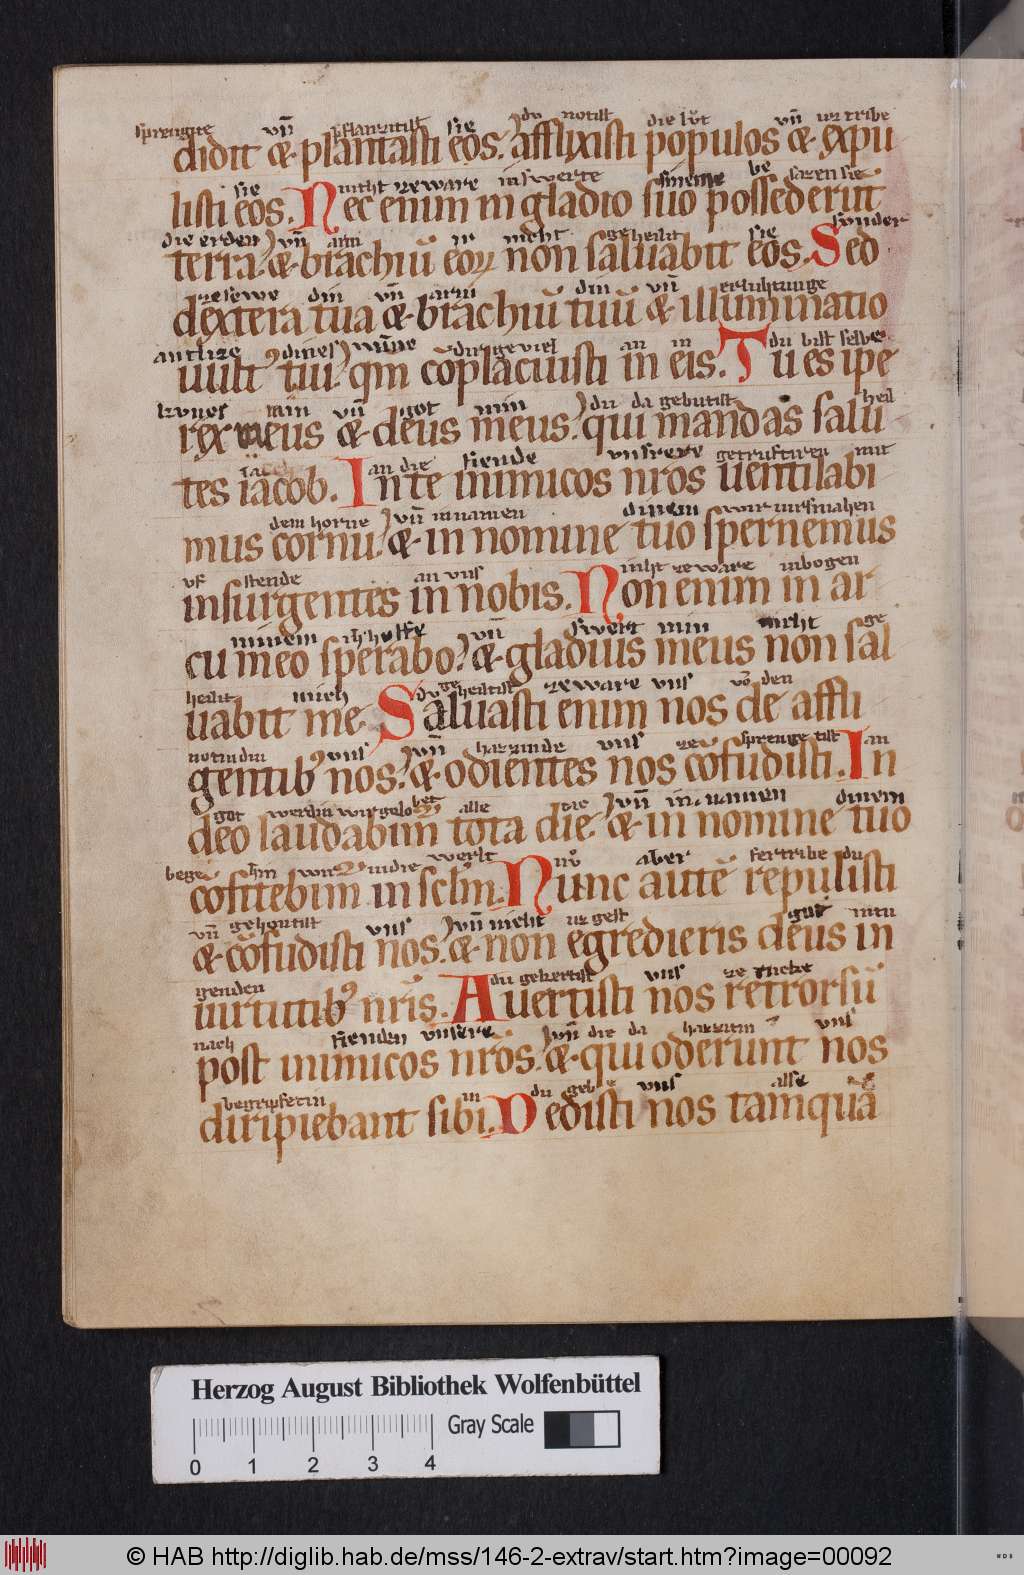 sprengite vñ pflanzitist sie du notist die lůt vñ uz tribe
didit & plantasti eos. afflixisti populos & expu
sie nicht zeware inswerte sineme be sazen sie
listi eos. Nec enim in gladio suo possederūt
die erden vñ arm ir nicht geheilit sie sunder
terra. & brachiū eoꝝ non saluabit eos. Sed
zesewe din vñ arm din vñ erluhtunge
dextera tua & brachiū tuū & illuminatio
antlize dines wūne du geviel an in du bist selbe
uult' tui. qm cōplacuisti in eis. Tu es ipe
kunec min vñ got min du da gebutist heil
rex meus & deus meus. qui mandas salu
iacob an die fiende unsrere mit
tes iacob. In te inimicos nros uentilabi
dem horne vñ in namen dinem wir
mus cornu. & in nomine tuo spernemus
uf stende an uns niht zeware inbogen
insurgentes in nobis. Non enim in ar
minem ich hoffe vñ swert min nicht ge
cu meo sperabo. & gladius meus non sal
heilit mich du geheiltist zeware uns den
uabit me. Saluasti enim nos de affli
uns vñ hazzinde uns sprenge tist an
gentib' nos. & odientes nos cōfudisti. In
got werdin wir gelobet alle die vñ in namen dinem
deo laudabim̄ tota die. & in nomine tuo
wir in die werlt nů aber fertribe du
cōfitebim̄ in sclm. Nunc autē repulisti
vñ gehontist uns vñ nicht uz gest got intu
& cōfudisti nos. & non egredieris deus in
genden du gekertist uns ze rucke
uirtutib' nris. Auertisti nos retrorsū
nach fienden unsere vñ die da hazzitin uns
post inimicos nrōs. & qui oderunt nos
in du gebe uns alse
diripiebant sibi. Dedisti nos tamquā
Herzog August Bibliothek Wolfenbüttel
Gray Scale
0 1 2 3 4
© HAB http://diglib.hab.de/mss/146-2-extrav/start.htm?image=00092